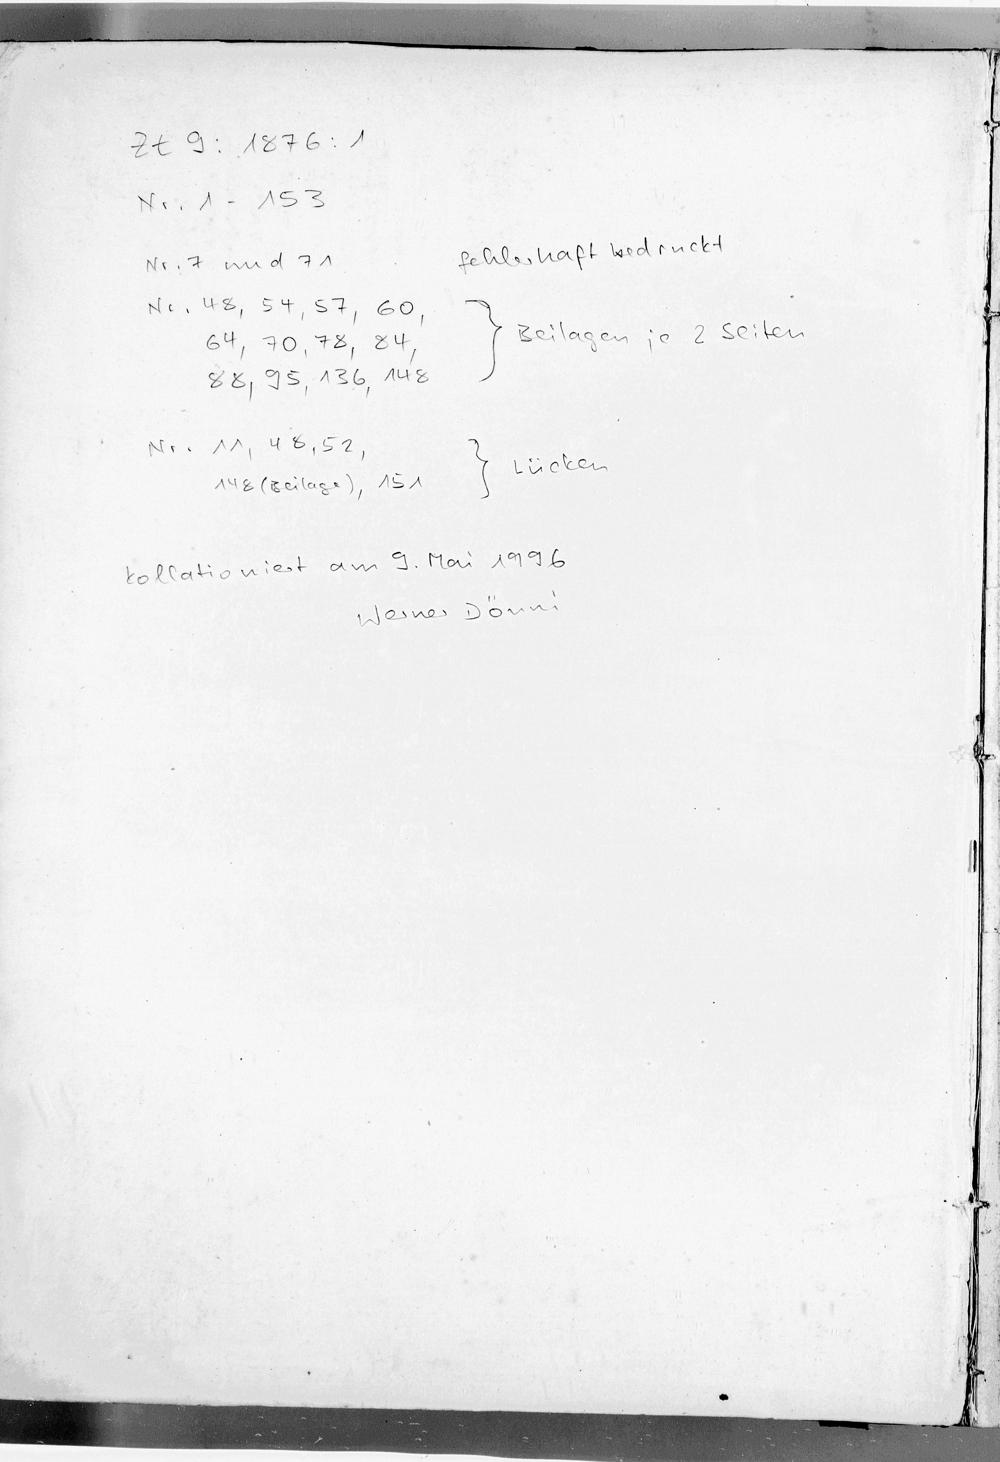 Zt 9: 1876: 1
Nr. 1 - 153
Nr. 7 und 71 fehlerhaft bedruckt
Nr. 48, 54, 57, 60,
64, 70, 78, 84,
88, 95, 136, 148
} Beilagen je 2 Seiten
Nr. 11, 48, 52,
148 (Beilage), 151
} Lücken
kollationiert am 9. Mai 1996
Werner Dönni